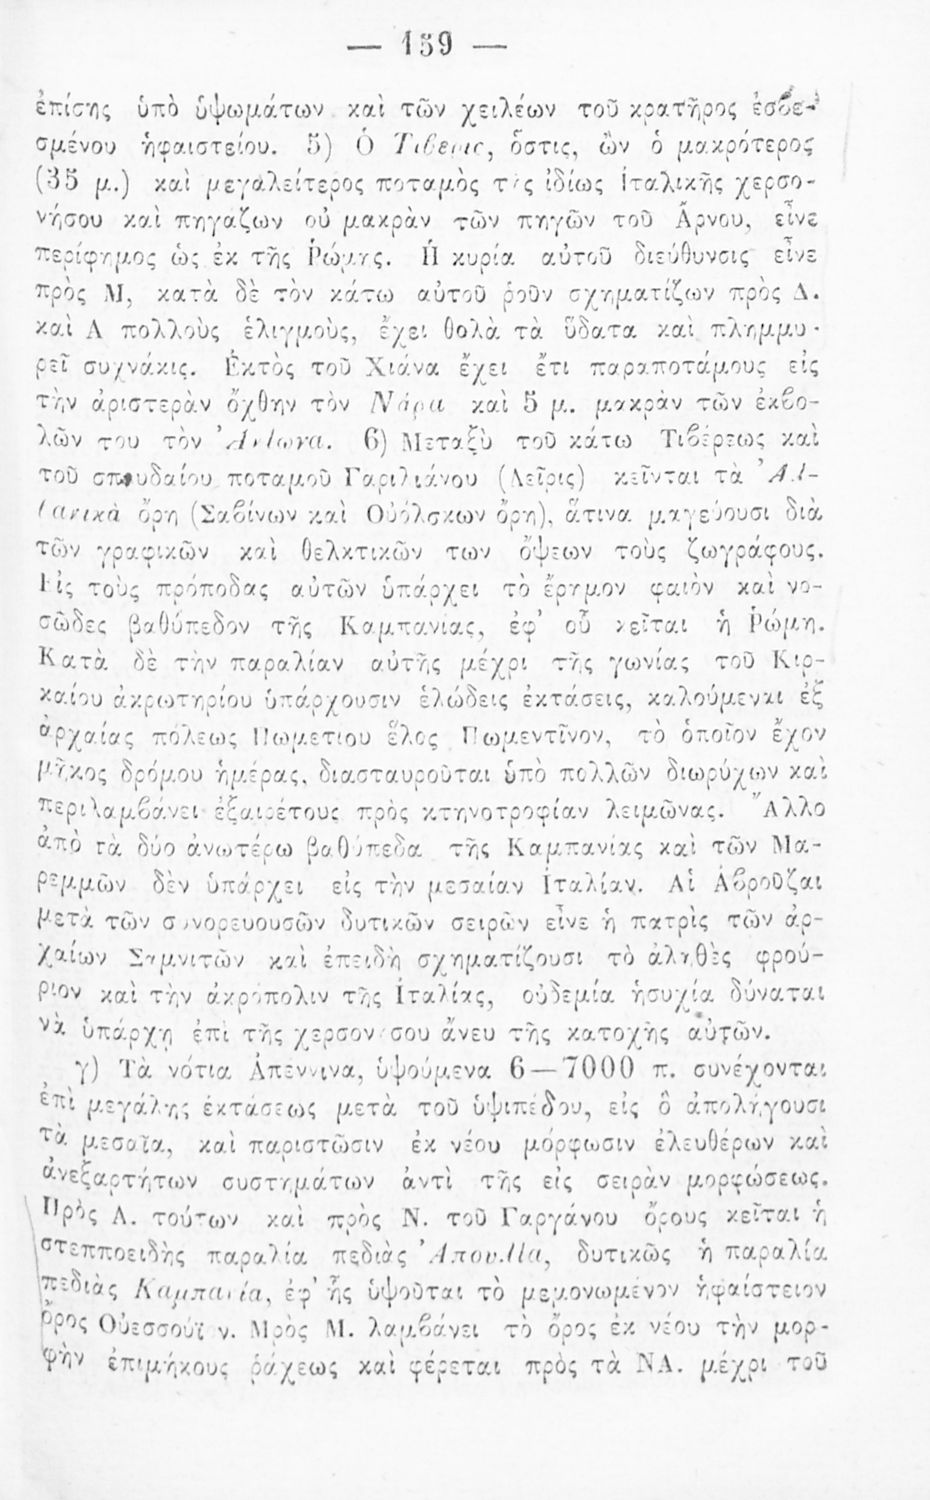 — 159 —
ἐπίσης ὑπὸ ὑψωμάτων καὶ τῶν χειλέων τοῦ κρατῆρος ἐσβε-
σμένου ἡφαιστείου. 5) Ὁ Τίβερις, ὅστις, ὢν ὁ μακρότερος
(35 μ.) καὶ μεγαλείτερος ποταμὸς τῆς ἰδίως Ἰταλικῆς χερσο-
νήσου καὶ πηγάζων οὐ μακρὰν τῶν πηγῶν τοῦ Ἄρνου, εἶνε
περίφημος ὡς ἐκ τῆς Ῥώμης. Ἡ κυρία αὐτοῦ διεύθυνσις εἶνε
πρὸς Μ, κατὰ δὲ τὸν κάτω αὐτοῦ ῥοῦν σχηματίζων πρὸς Δ.
καὶ Α πολλοὺς ἑλιγμοὺς, ἔχει θολὰ τὰ ὕδατα καὶ πλημμυ-
ρεῖ συχνάκις. Ἐκτὸς τοῦ Χιάνα ἔχει ἔτι παραποτάμους εἰς
τὴν ἀριστερὰν ὄχθην τὸν Νάρα καὶ 5 μ. μακρὰν τῶν ἐκβο-
λῶν του τὸν. 6) Μεταξὺ τοῦ κάτω Τιβέρεως καὶ
τοῦ σπουδαίου ποταμοῦ Γαριλιάνου (Λεῖρις) κεῖνται τὰ Ἀλ-
βανικὰ ὄρη (Σαβίνων καὶ Οὐόλσκων ὄρη), ἅτινα μαγεύουσι διὰ
τῶν γραφικῶν καὶ θελκτικῶν των ὄψεων τοὺς ζωγράφους.
Εἰς τοὺς πρόποδας αὐτῶν ὑπάρχει τὸ ἔρημον φαιὸν καὶ νο-
σῶδες βαθύπεδον τῆς Καμπανίας, ἐφ' οὗ κεῖται ἡ Ῥώμη.
Κατὰ δὲ τὴν παραλίαν αὐτῆς μέχρι τῆς γωνίας τοῦ Κιρ-
καίου ἀκρωτηρίου ὑπάρχουσιν ἑλώδεις ἐκτάσεις, καλούμεναι ἐξ
ἀρχαίας πόλεως Πωμετίου ἕλος Πωμεντῖνον, τὸ ὁποῖον ἔχον
μῆκος δρόμου ἡμέρας, διασταυροῦται ὑπὸ πολλῶν διωρύχων καὶ
περιλαμβάνει ἐξαιρέτους πρὸς κτηνοτροφίαν λειμῶνας. Ἄλλο
ἀπὸ τὰ δύο ἀνωτέρω βαθύπεδα τῆς Καμπανίας καὶ τῶν Μα-
ρεμμῶν δὲν ὑπάρχει εἰς τὴν μεσαίαν Ἰταλίαν. Αἱ Ἀβροῦζαι
μετὰ τῶν συνορευουσῶν δυτικῶν σειρῶν εἶνε ἡ πατρὶς τῶν ἀρ-
χαίων Σαμνιτῶν καὶ ἐπειδὴ σχηματίζουσι τὸ ἀληθὲς φρού-
ριον καὶ τὴν ἀκρόπολιν τῆς Ἰταλίας, οὐδεμία ἡσυχία δύναται
νὰ ὑπάρχῃ ἐπὶ τῆς χερσονήσου ἄνευ τῆς κατοχῆς αὐτῶν.
γ) Τὰ νότια Ἀπέννινα, ὑψούμενα 6 — 7000 π. συνέχονται
ἐπὶ μεγάλης ἐκτάσεως μετὰ τοῦ ὑψιπέδου, εἰς ὃ ἀπολήγουσι
τὰ μεσαῖα, καὶ παριστῶσιν ἐκ νέου μόρφωσιν ἐλευθέρων καὶ
ἀνεξαρτήτων συστημάτων ἀντὶ τῆς εἰς σειρὰν μορφώσεως.
Πρὸς Α. τούτων καὶ πρὸς Ν. τοῦ Γαργάνου ὄρους κεῖται ἡ
στεπποειδὴς παραλία πεδιὰς Ἀπουλία, δυτικῶς ἡ παραλία
πεδιὰς Καμπανία, ἐφ' ἧς ὑψοῦται τὸ μεμονωμένον ἡφαίστειον
ὄρος Οὐεσσούϊον. Μρὸς Μ. λαμβάνει τὸ ὄρος ἐκ νέου τὴν μορ-
φὴν ἐπιμήκους ῥάχεως καὶ φέρεται πρὸς τὰ ΝΑ. μέχρι τοῦ